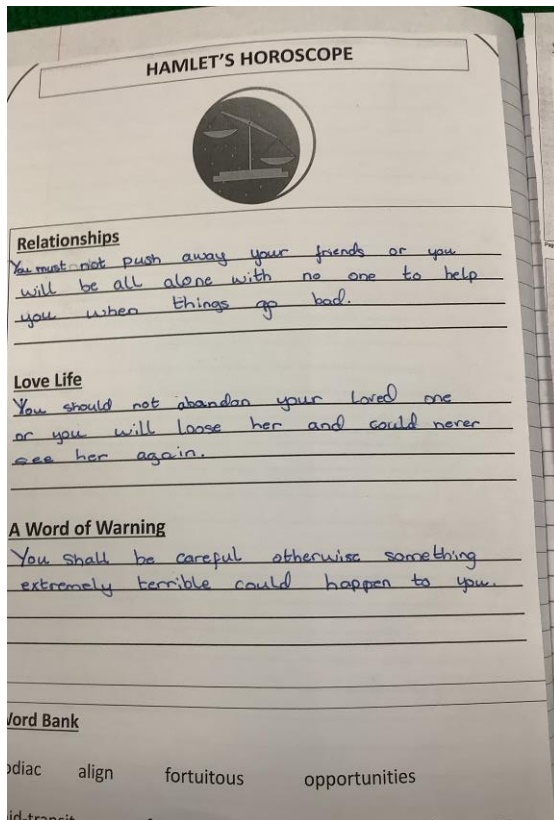 HAMLET'S HOROSCOPE
Relationships
You must not push away your friends or you
will be all alone with no one to help
you when things go bad.
Love Life
You should not abandon your loved one
or you will loose her and could never
see her again.
A Word of Warning
You shall be careful otherwise something
extremely terrible could happen to you.
Word Bank
odiac align fortuitous opportunities
id-transit